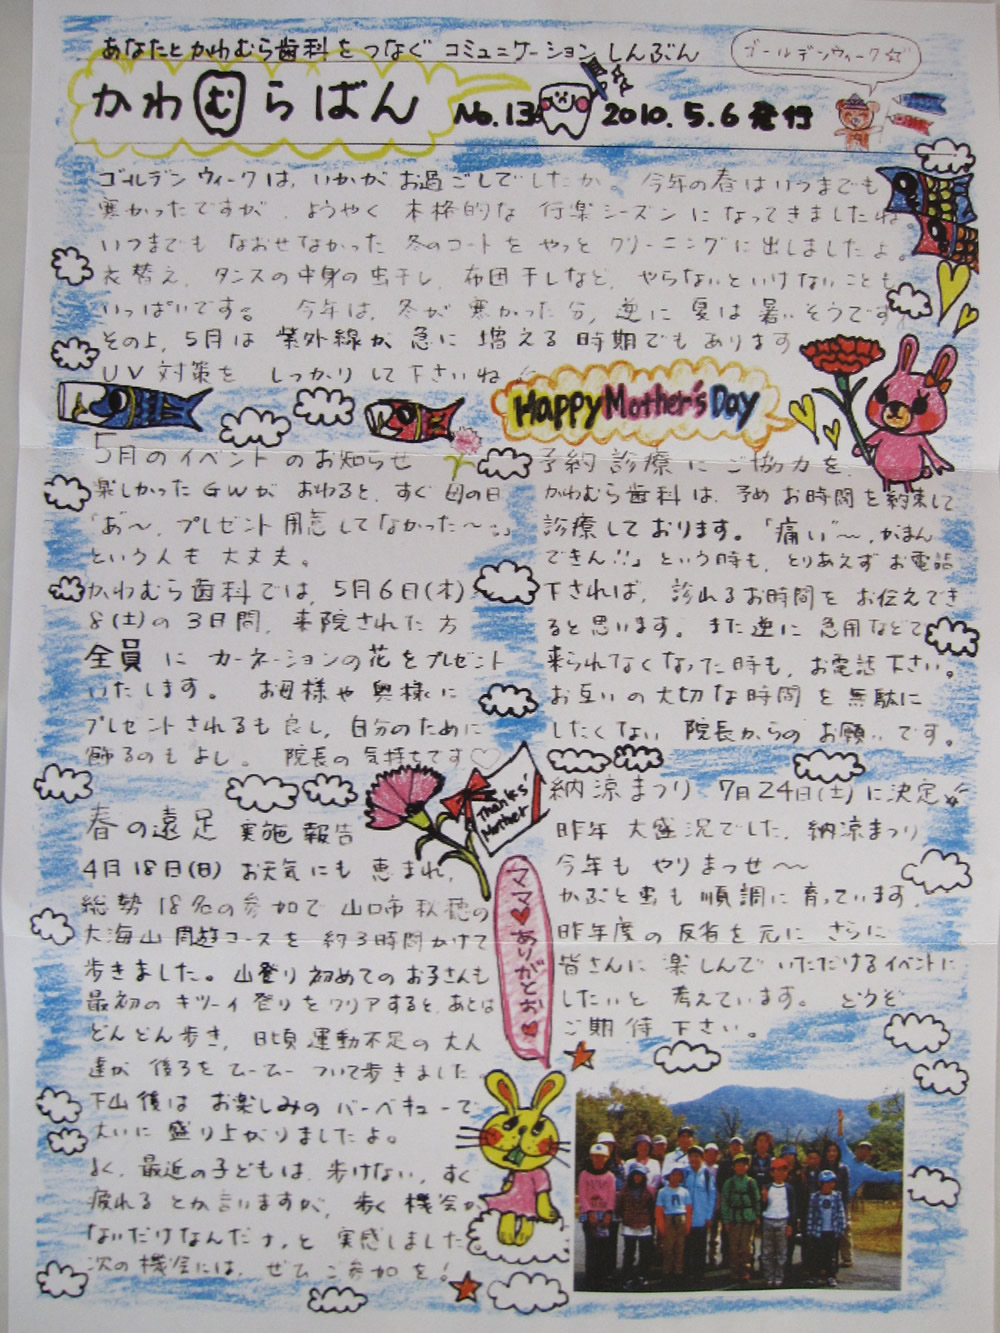 あなたとかわむら歯科をつなぐ コミュニケーションしんぶん
ゴールデンウィーク☆
かわむらばん No.13 2010.5.6発行
ゴールデンウィークは、いかがお過ごしでしたか。今年の春はいつまでも
寒かったですが、ようやく本格的な行楽シーズンになってきましたね。
いつまでもなおせなかった冬のコートをやっとクリーニングに出しましたよ。
衣替え、タンスの中身の虫干し、布団干しなど、やらないといけないことも
いっぱいです。今年は、冬が寒かった分、逆に夏は暑いそうです。
その上、5月は紫外線が急に増える時期でもあります
UV対策をしっかりして下さいね
Happy Mother's Day
5月のイベントのお知らせ
楽しかったGWがおわると、すぐ母の日
「あ〜、プレゼント用意してなかった〜」
という人も大丈夫。
かわむら歯科では、5月6日(木)
8(土)の3日間、来院された方
全員にカーネーションの花をプレゼント
いたします。お母様や奥様に
プレゼントされるも良し、自分のために
飾るのもよし。院長の気持ちです♡
予約診療にご協力を。
かわむら歯科は、予めお時間を約束して
診療しております。「痛い〜、がまん
できん!!」という時も、とりあえずお電話
下されば、診れるお時間をお伝えでき
ると思います。また逆に急用などで
来られなくなった時も、お電話下さい。
お互いの大切な時間を無駄に
したくない院長からのお願いです。
Thank's Mother
春の遠足 実施報告
4月18日(日)お天気にも恵まれ、
総勢18名の参加で山口市秋穂の
大海山周遊コースを約3時間かけて
歩きました。山登り初めてのお子さんも
最初のキツーイ登りをクリアすると、あとは
どんどん歩き、日頃運動不足の大人
達が後ろをひーひーついて歩きました
下山後はお楽しみのバーベキューで
大いに盛り上がりましたよ。
よく、最近の子どもは、歩けない、すぐ
疲れるとか言いますが、歩く機会が
ないだけなんだナ、と実感しました
次の機会には、ぜひご参加を!
ママ♥ありがとお♥
納涼まつり 7月24日(土)に決定☆
昨年大盛況でした、納涼まつり
今年もやりまっせ〜
かぶと虫も順調に育っています。
昨年度の反省を元にさらに
皆さんに楽しんでいただけるイベントに
したいと考えています。どうぞ
ご期待下さい。